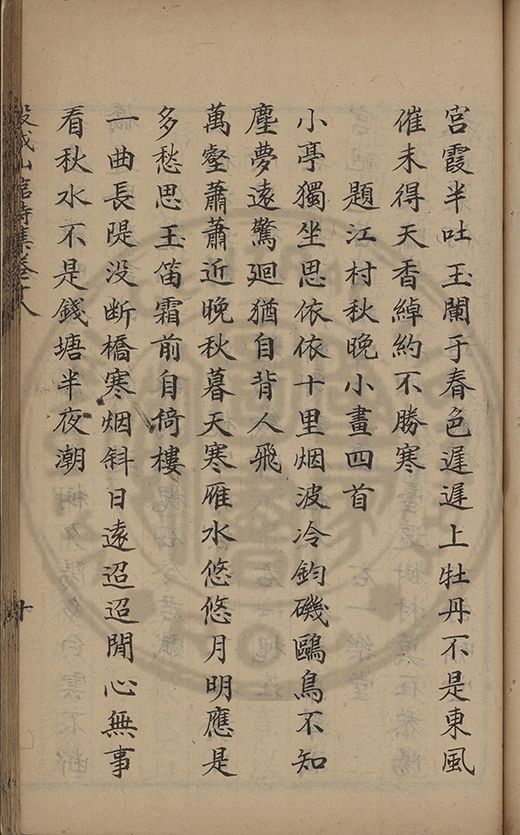 宮霞半吐玉闌干春色遲遲上牡丹不是東風
催未得天香綽約不勝寒
題江村秋晚小畫四首
小亭獨坐思依依十里烟波冷釣磯鷗鳥不知
塵夢遠驚迴猶自背人飛
萬壑蕭蕭近晚秋暮天寒雁水悠悠月明應是
多愁思玉笛霜前自倚樓
一曲長隄没斷橋寒烟斜日遠迢迢閒心無事
看秋水不是錢塘半夜潮
穀城山館詩集卷十八
十